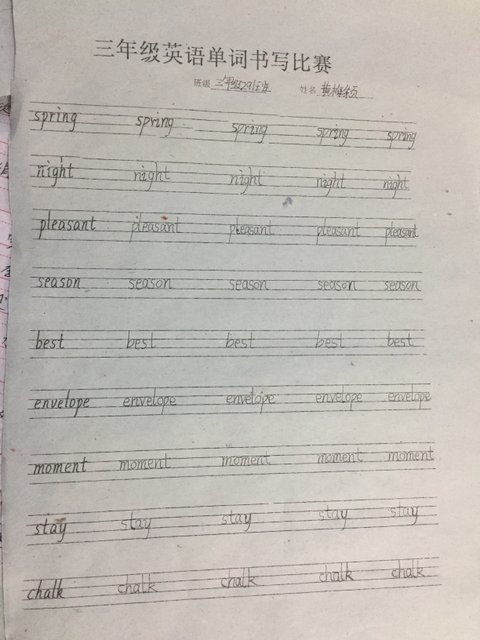 三年级英语单词书写比赛
班级 三年级 姓名
spring spring spring spring spring
night night night night night
pleasant pleasant pleasant pleasant pleasant
season season season season season
best best best best best
envelope envelope envelope envelope envelope
moment moment moment moment moment
stay stay stay stay stay
chalk chalk chalk chalk chalk